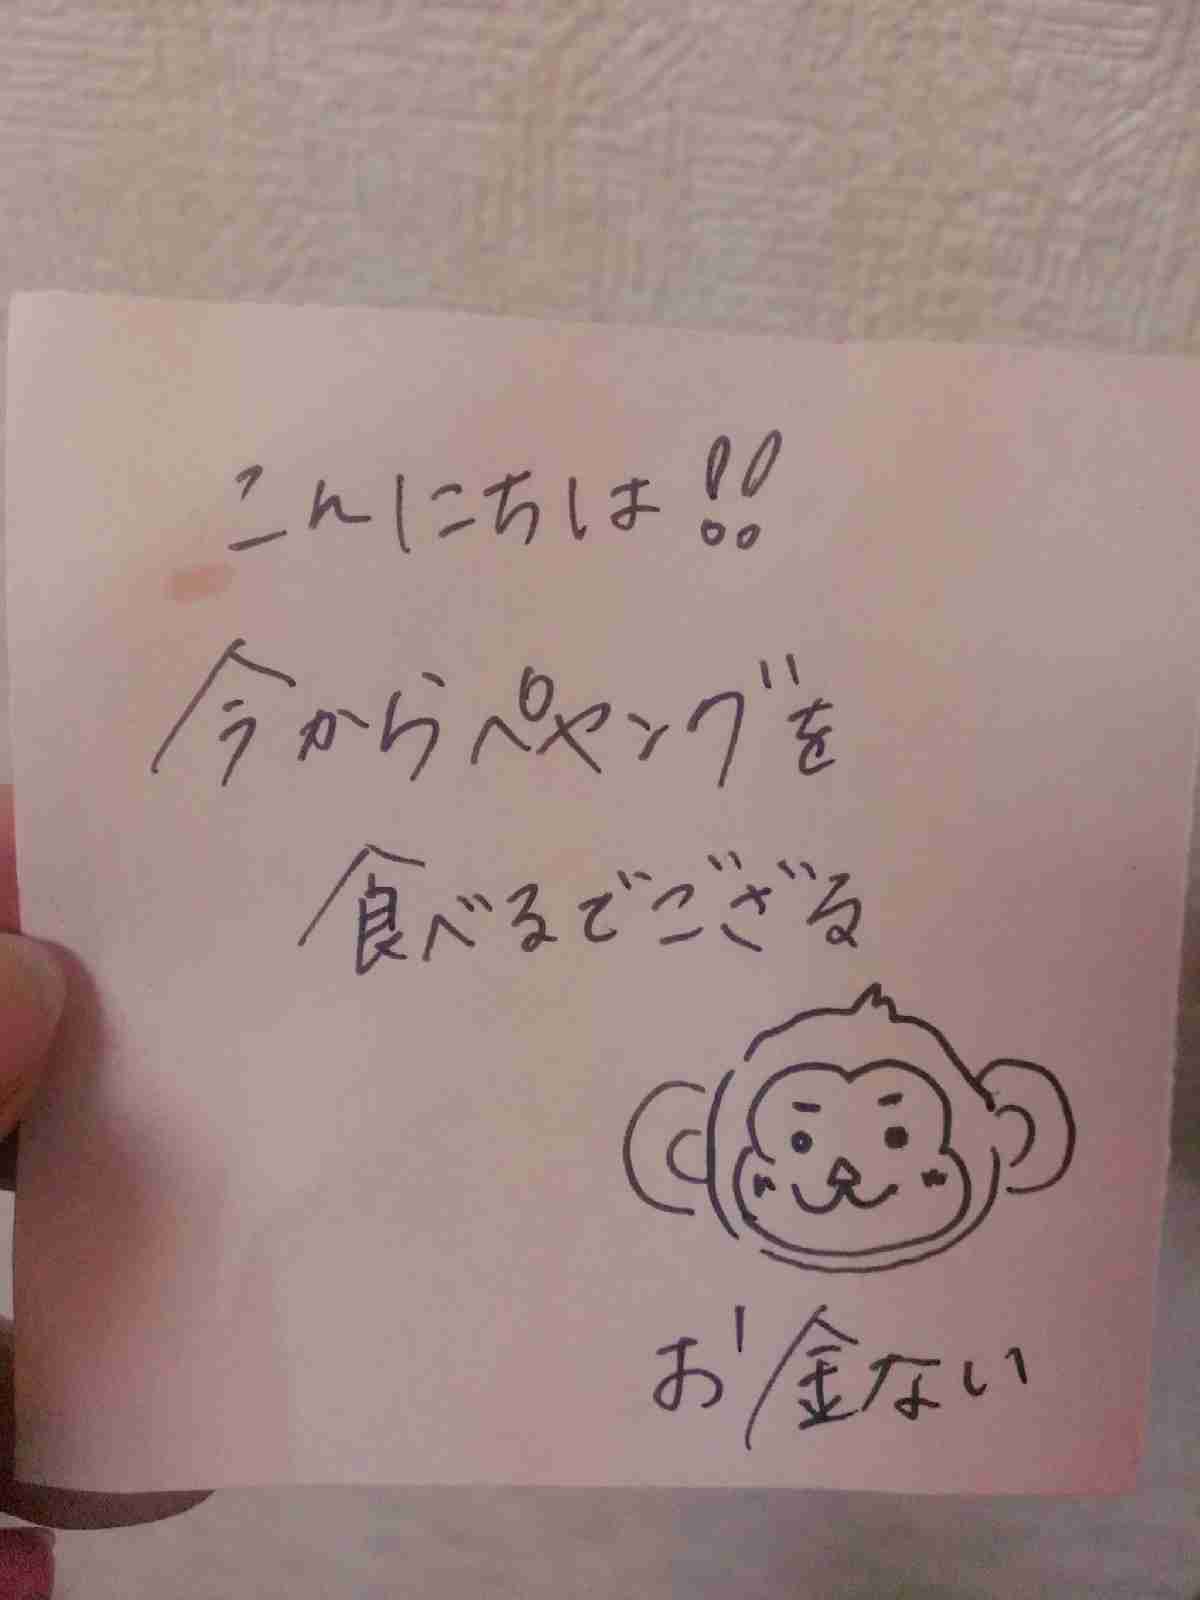 こんにちは!!
今からペヤングを
食べるでござる
お金ない